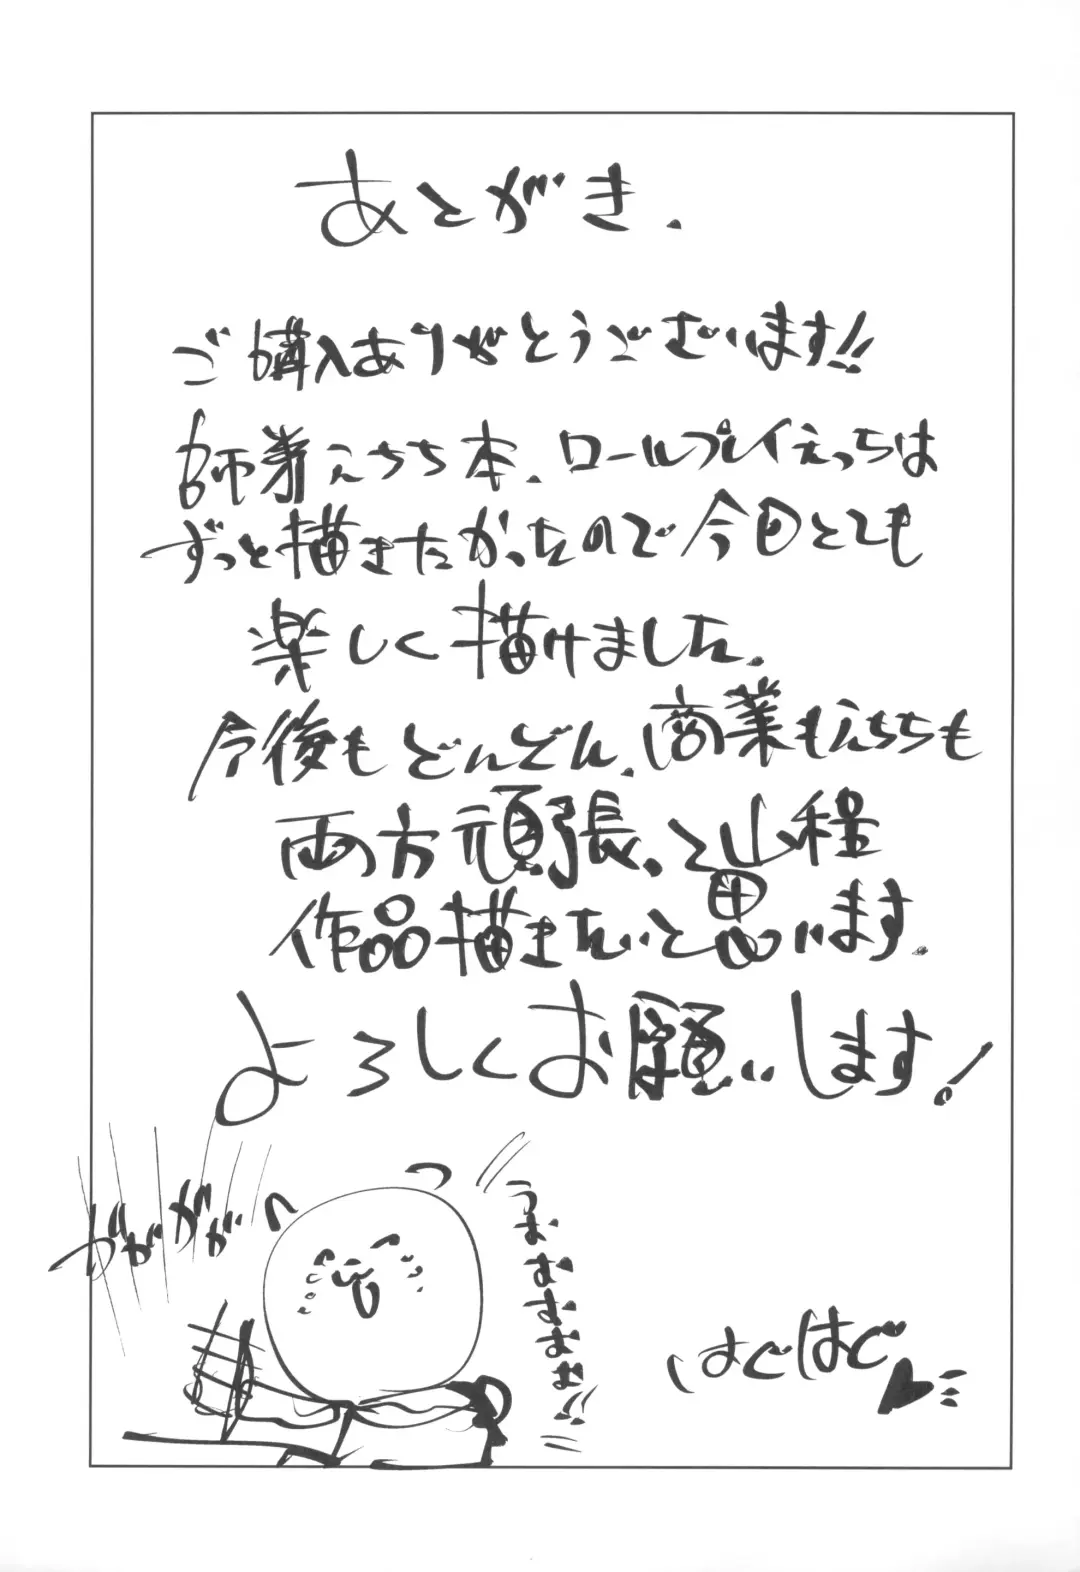 あとがき.
ご購入ありがとうございます!!
師弟えっち本、ロールプレイえっちは
ずっと描きたかったので今回とても
楽しく描けました.
今後もどんどん、商業もえっちも
両方頑張って山程
作品描きたいと思います.
よろしくお願いします!
ががががが
うおおおおお!!
はぐはぐ